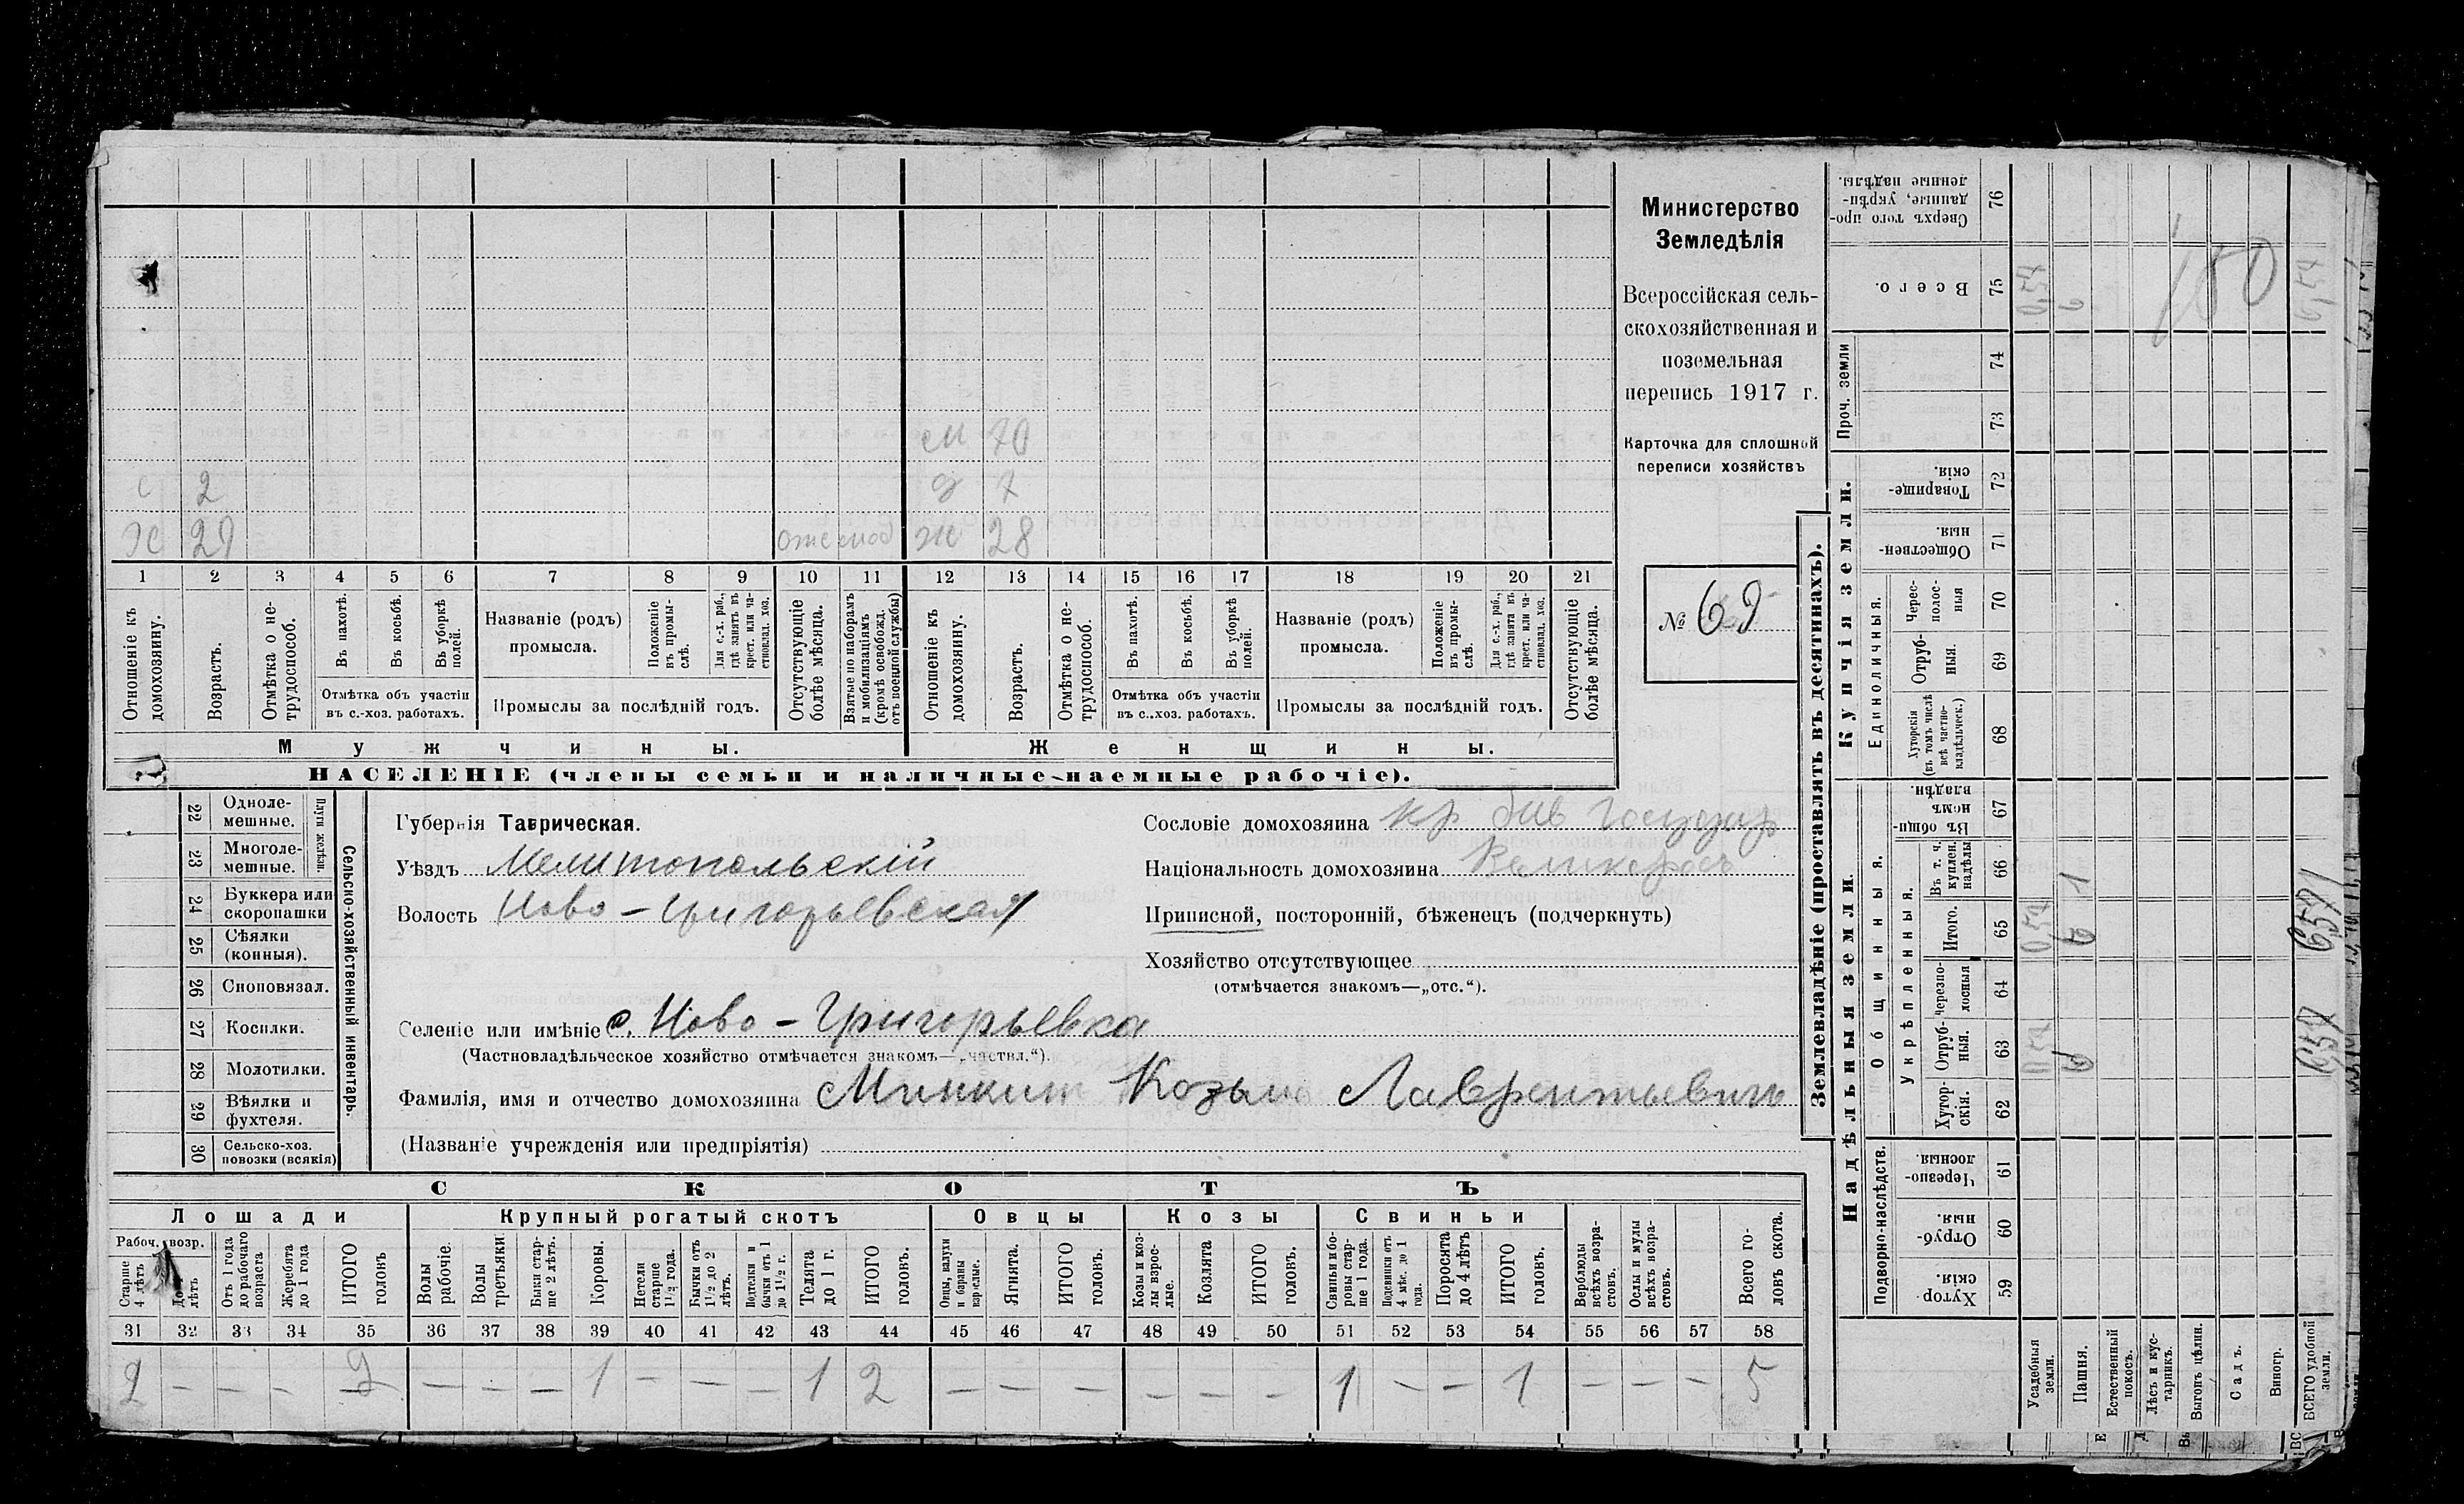 Министерство
Земледѣлія
Всероссійская сель-
скохозяйственная и
поземельная
перепись 1917 г.
Карточка для сплошной
переписи хозяйствъ
№ 69
м 70
с 2
д 7
Ж 28
1 2 3 4 5 6 7 8 9 10 11 12 13 14 15 16 17 18 19 20 21
Отношеніе къ домохозяину.
Возрастъ.
Отмѣтка о не-трудоспособ.
Въ пахотѣ.
Въ косьбѣ.
Въ уборкѣ полей.
Отмѣтка объ участіи въ с.-хоз. работахъ.
Названіе (родъ) промысла.
Положеніе въ промы-слѣ.
Для с.-х. раб., гдѣ занятъ въ крест. или ча-стновлад. хоз.
Промыслы за послѣдній годъ.
Отсутствующіе болѣе мѣсяца.
Взятые по наборамъ и мобилизаціямъ (кромѣ освобожд. отъ военной службы)
Отношеніе къ домохозяину.
Возрастъ.
Отмѣтка о не-трудоспособ.
Въ пахотѣ.
Въ косьбѣ.
Въ уборкѣ полей.
Отмѣтка объ участіи въ с.-хоз. работахъ.
Названіе (родъ) промысла.
Положеніе въ промы-слѣ.
Для с.-х. раб., гдѣ занята въ крест. или ча-стновлад. хоз.
Промыслы за послѣдній годъ.
Отсутствующіе болѣе мѣсяца.
Мужчины.
Женщины.
НАСЕЛЕНІЕ (члены семьи и наличные наемные рабочіе).
Сельско-хозяйственный инвентарь.
Плуги желѣзн.
22 Одноле-мешные.
23 Многоле-мешные.
24 Буккера или скоропашки
25 Сѣялки (конныя).
26 Сноповязал.
27 Косилки.
28 Молотилки.
29 Вѣялки и фухтеля.
30 Сельско-хоз. повозки (всякія)
Губернія Таврическая.
Уѣздъ Мелитопольскій
Волость Ново-Григорьевская
Сословіе домохозяина кр быв Государ
Національность домохозяина Великоросъ
Приписной, посторонній, бѣженецъ (подчеркнуть)
Хозяйство отсутствующее
(отмѣчается знакомъ—„отс.“).
Селеніе или имѣніе с. Ново-Григорьевка
(Частновладѣльческое хозяйство отмѣчается знакомъ—„частвл.“).
Фамилія, имя и отчество домохозяина Козьма Лаврентьевичъ
(Названіе учрежденія или предпріятія)
СКОТЪ
Лошади
Крупный рогатый скотъ
Овцы
Козы
Свиньи
Рабоч. возр.
Старше 4 лѣтъ
До лѣтъ
Отъ 1 года до рабочаго возраста
Жеребята до 1 года
ИТОГО головъ
Волы рабочіе.
Волы третьяки.
Быки стар-ше 2 лѣтъ.
Коровы.
Нетели старше 1½ года.
Бычки отъ 1½ до 2 лѣтъ.
Подтелки и бычки отъ 1 до 1½ г.
Телята до 1 г.
ИТОГО головъ.
Овцы, валухи и бараны взрослые.
Ягнята.
ИТОГО головъ.
Козы и коз-лы взрос-лые.
Козлята
ИТОГО головъ.
Свиньи и бо-ровы стар-ше 1 года.
Подсвинки отъ 4 мѣс. до 1 года.
Поросята до 4 лѣтъ
ИТОГО головъ.
Верблюды всѣхъ возра-стовъ.
Ослы и мулы всѣхъ возра-стовъ.
Всего го-ловъ скота.
31 32 33 34 35 36 37 38 39 40 41 42 43 44 45 46 47 48 49 50 51 52 53 54 55 56 57 58
2 — — — 2 — — — 1 — — — 1 2 — — — — — — 1 — — 1 — — — 5
Землевладѣніе (проставлять въ десятинахъ).
Сверхъ того про-данные, укрѣп-ленные надѣлы. 76
Всего. 75
Проч. земли 74 73
Купчія земли.
Товарище-скія. 72
Обществен-ныя. 71
Единоличныя.
Черес-полос-ныя 70
Отруб-ныя. 69
Хуторскія (въ томъ числѣ всѣ частно-владѣльческ.) 68
Надѣльныя земли.
Общинныя.
Въ общин-номъ владѣн. 67
Укрѣпленныя.
Въ т. ч. куплен. надѣлы 66
Итого. 65
Черезпо-лосныя 64
Отруб-ныя. 63
Хутор-скія. 62
Подворно-наслѣдств.
Черезпо-лосныя. 61
Отруб-ныя. 60
Хутор-скія. 59
Усадебныя земли.
Пашня.
Естественный покосъ.
Лѣсъ и кус-тарникъ.
Выгонъ цѣлин.
Садъ.
Виногр.
ВСЕГО удобной земли.
0,54 6 180 6,54
0,54 6 1 6,54
0,54 6 6,54